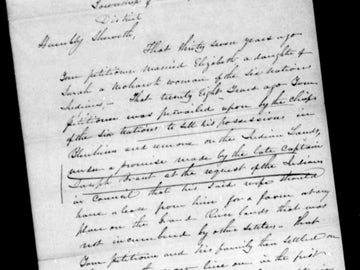 Township of
District
Humbly Sheweth,
That thirty seven years ago
Your petitioner married Elizabeth a daughter of
Sarah a Mohawk woman of the Six Nations
Indians,— That twenty Eight Years ago Your
petitioner was prevailed upon by the Chiefs
of the six Nations to sell his possessions in
and remove on the Indian Lands,
under a promise made by the late Captain
Joseph Brant at the request of the Indians
in Council that his said wife should
have a lease from him for a farm at any
place on the Grand River lands that was
not incumbered by other Settlers— That
Your petitioner and his family then settled on
now live on in the